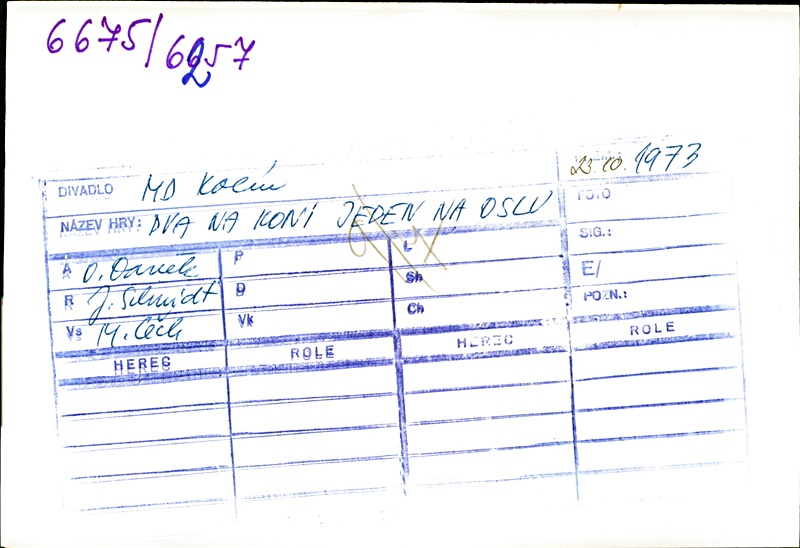 6675/6257
DIVADLO MD Kolín 23.10.1973
NÁZEV HRY: DVA NA KONI JEDEN NA OSLU FOTO
A O. Daněk P L SIG.:
R J. Schmidt D Sh E/
Vs M. Čech Vk Ch POZN.:
HEREC ROLE HEREC ROLE